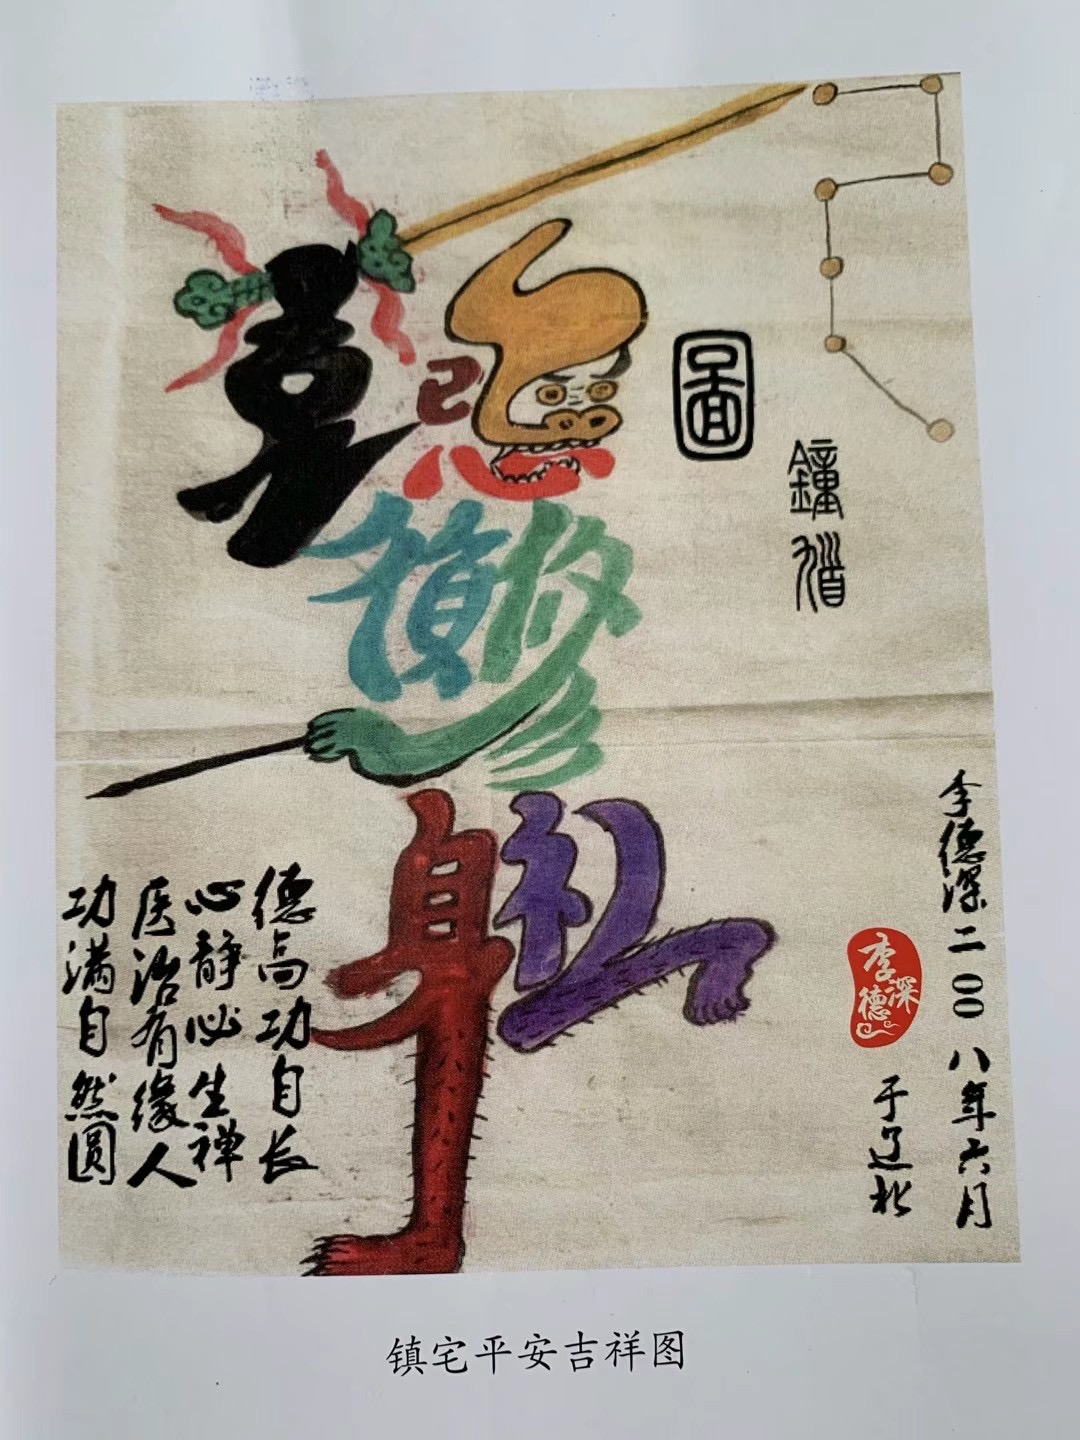 李德深二00八年六月
于辽北
李德深
鐘馗
圖
己
心
修
身
礼
德高功自长
心静必生禅
医治有缘人
功满自然圆
镇宅平安吉祥图